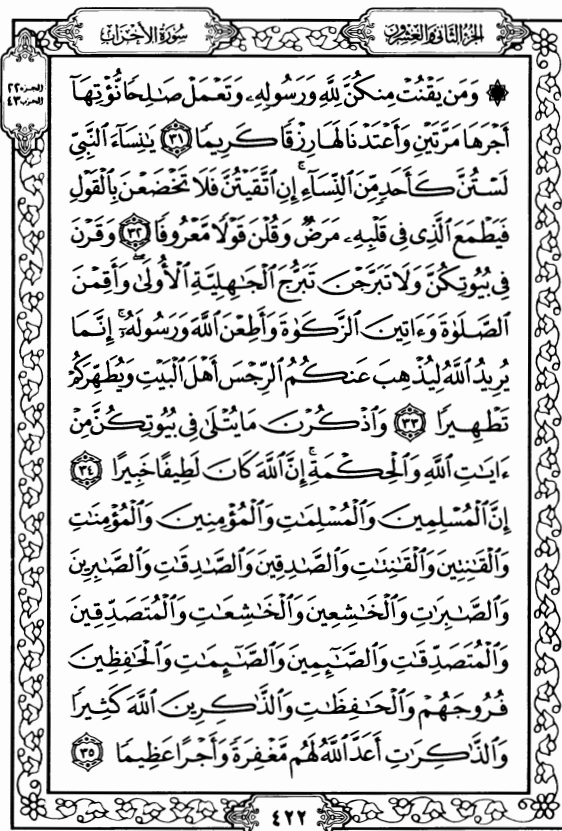 سُورَةُ الأَحْزَاب
الجُزءُ الثَّانِي وَالعِشْرُونَ
الجزء ٢٢
الحزب ٤٣
۞ وَمَن يَقْنُتْ مِنكُنَّ لِلَّهِ وَرَسُولِهِۦ وَتَعْمَلْ صَٰلِحًا نُّؤْتِهَآ
أَجْرَهَا مَرَّتَيْنِ وَأَعْتَدْنَا لَهَا رِزْقًا كَرِيمًا ٣١ يَٰنِسَآءَ ٱلنَّبِيِّ
لَسْتُنَّ كَأَحَدٍ مِّنَ ٱلنِّسَآءِ ۚ إِنِ ٱتَّقَيْتُنَّ فَلَا تَخْضَعْنَ بِٱلْقَوْلِ
فَيَطْمَعَ ٱلَّذِى فِى قَلْبِهِۦ مَرَضٌ وَقُلْنَ قَوْلًا مَّعْرُوفًا ٣٢ وَقَرْنَ
فِى بُيُوتِكُنَّ وَلَا تَبَرَّجْنَ تَبَرُّجَ ٱلْجَٰهِلِيَّةِ ٱلْأُولَىٰ ۖ وَأَقِمْنَ
ٱلصَّلَوٰةَ وَءَاتِينَ ٱلزَّكَوٰةَ وَأَطِعْنَ ٱللَّهَ وَرَسُولَهُۥٓ ۚ إِنَّمَا
يُرِيدُ ٱللَّهُ لِيُذْهِبَ عَنكُمُ ٱلرِّجْسَ أَهْلَ ٱلْبَيْتِ وَيُطَهِّرَكُمْ
تَطْهِيرًا ٣٣ وَٱذْكُرْنَ مَا يُتْلَىٰ فِى بُيُوتِكُنَّ مِنْ
ءَايَٰتِ ٱللَّهِ وَٱلْحِكْمَةِ ۚ إِنَّ ٱللَّهَ كَانَ لَطِيفًا خَبِيرًا ٣٤
إِنَّ ٱلْمُسْلِمِينَ وَٱلْمُسْلِمَٰتِ وَٱلْمُؤْمِنِينَ وَٱلْمُؤْمِنَٰتِ
وَٱلْقَٰنِتِينَ وَٱلْقَٰنِتَٰتِ وَٱلصَّٰدِقِينَ وَٱلصَّٰدِقَٰتِ وَٱلصَّٰبِرِينَ
وَٱلصَّٰبِرَٰتِ وَٱلْخَٰشِعِينَ وَٱلْخَٰشِعَٰتِ وَٱلْمُتَصَدِّقِينَ
وَٱلْمُتَصَدِّقَٰتِ وَٱلصَّٰٓئِمِينَ وَٱلصَّٰٓئِمَٰتِ وَٱلْحَٰفِظِينَ
فُرُوجَهُمْ وَٱلْحَٰفِظَٰتِ وَٱلذَّٰكِرِينَ ٱللَّهَ كَثِيرًا
وَٱلذَّٰكِرَٰتِ أَعَدَّ ٱللَّهُ لَهُم مَّغْفِرَةً وَأَجْرًا عَظِيمًا ٣٥
٤٢٢